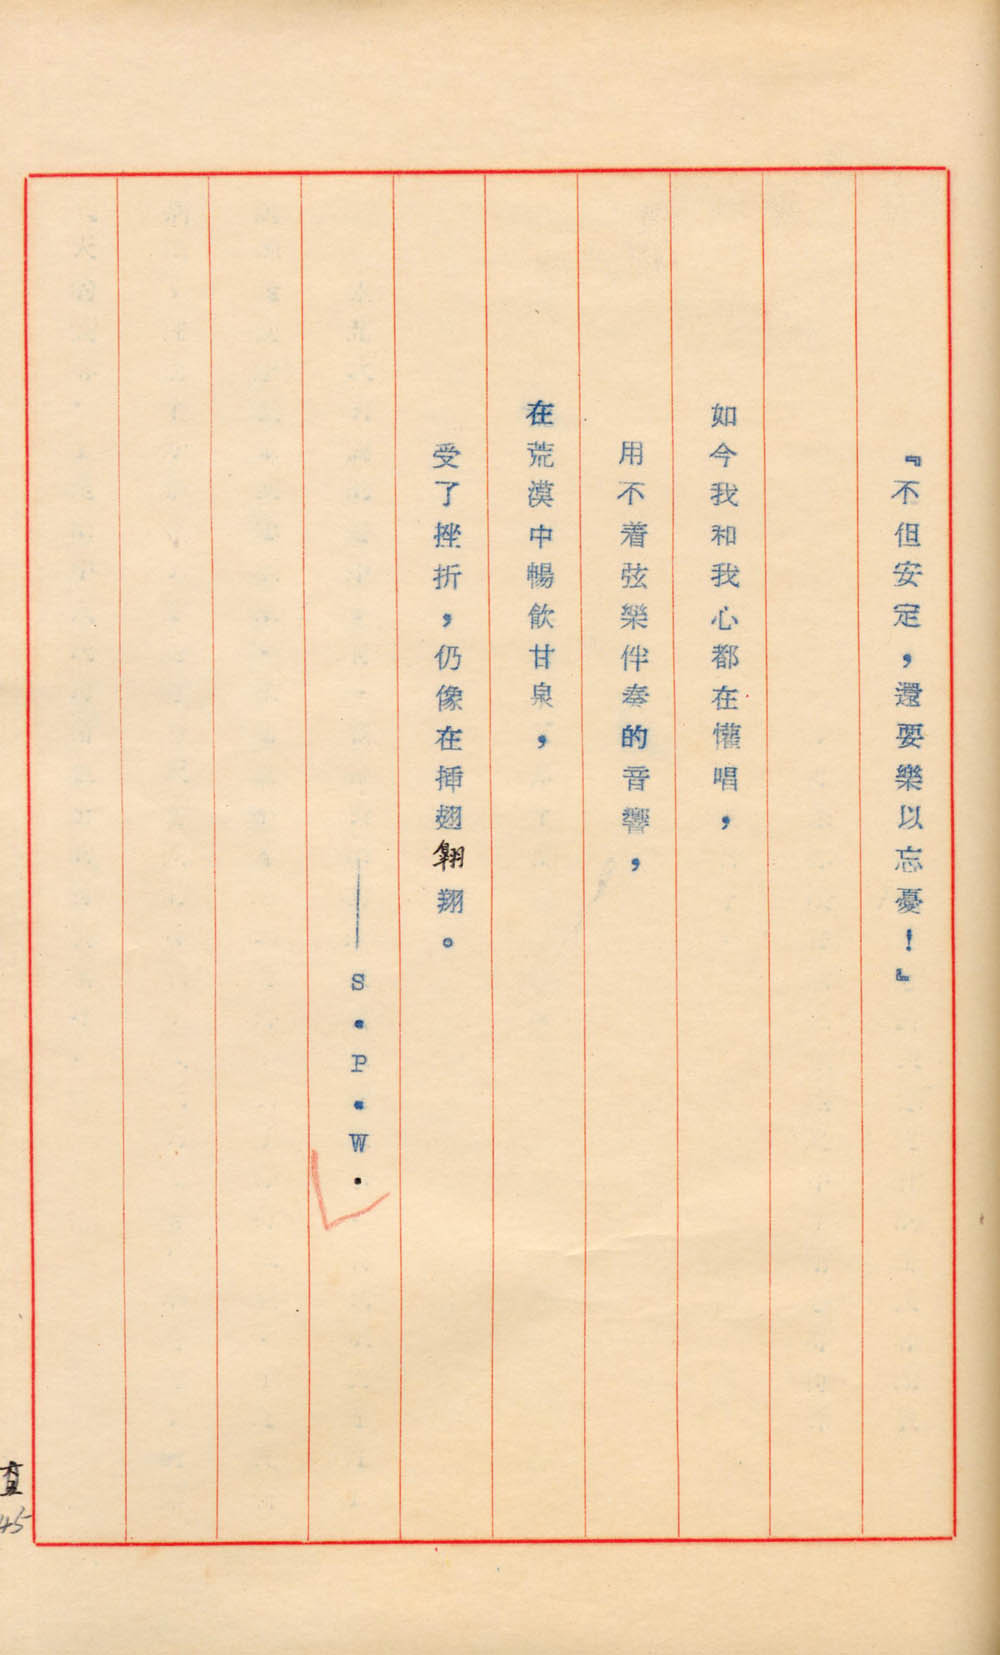 『不但安定，還要樂以忘憂！』
如今我和我心都在懽唱，
用不着弦樂伴奏的音響，
在荒漠中暢飲甘泉，
受了挫折，仍像在揷翅翱翔。
——S．P．W．
45